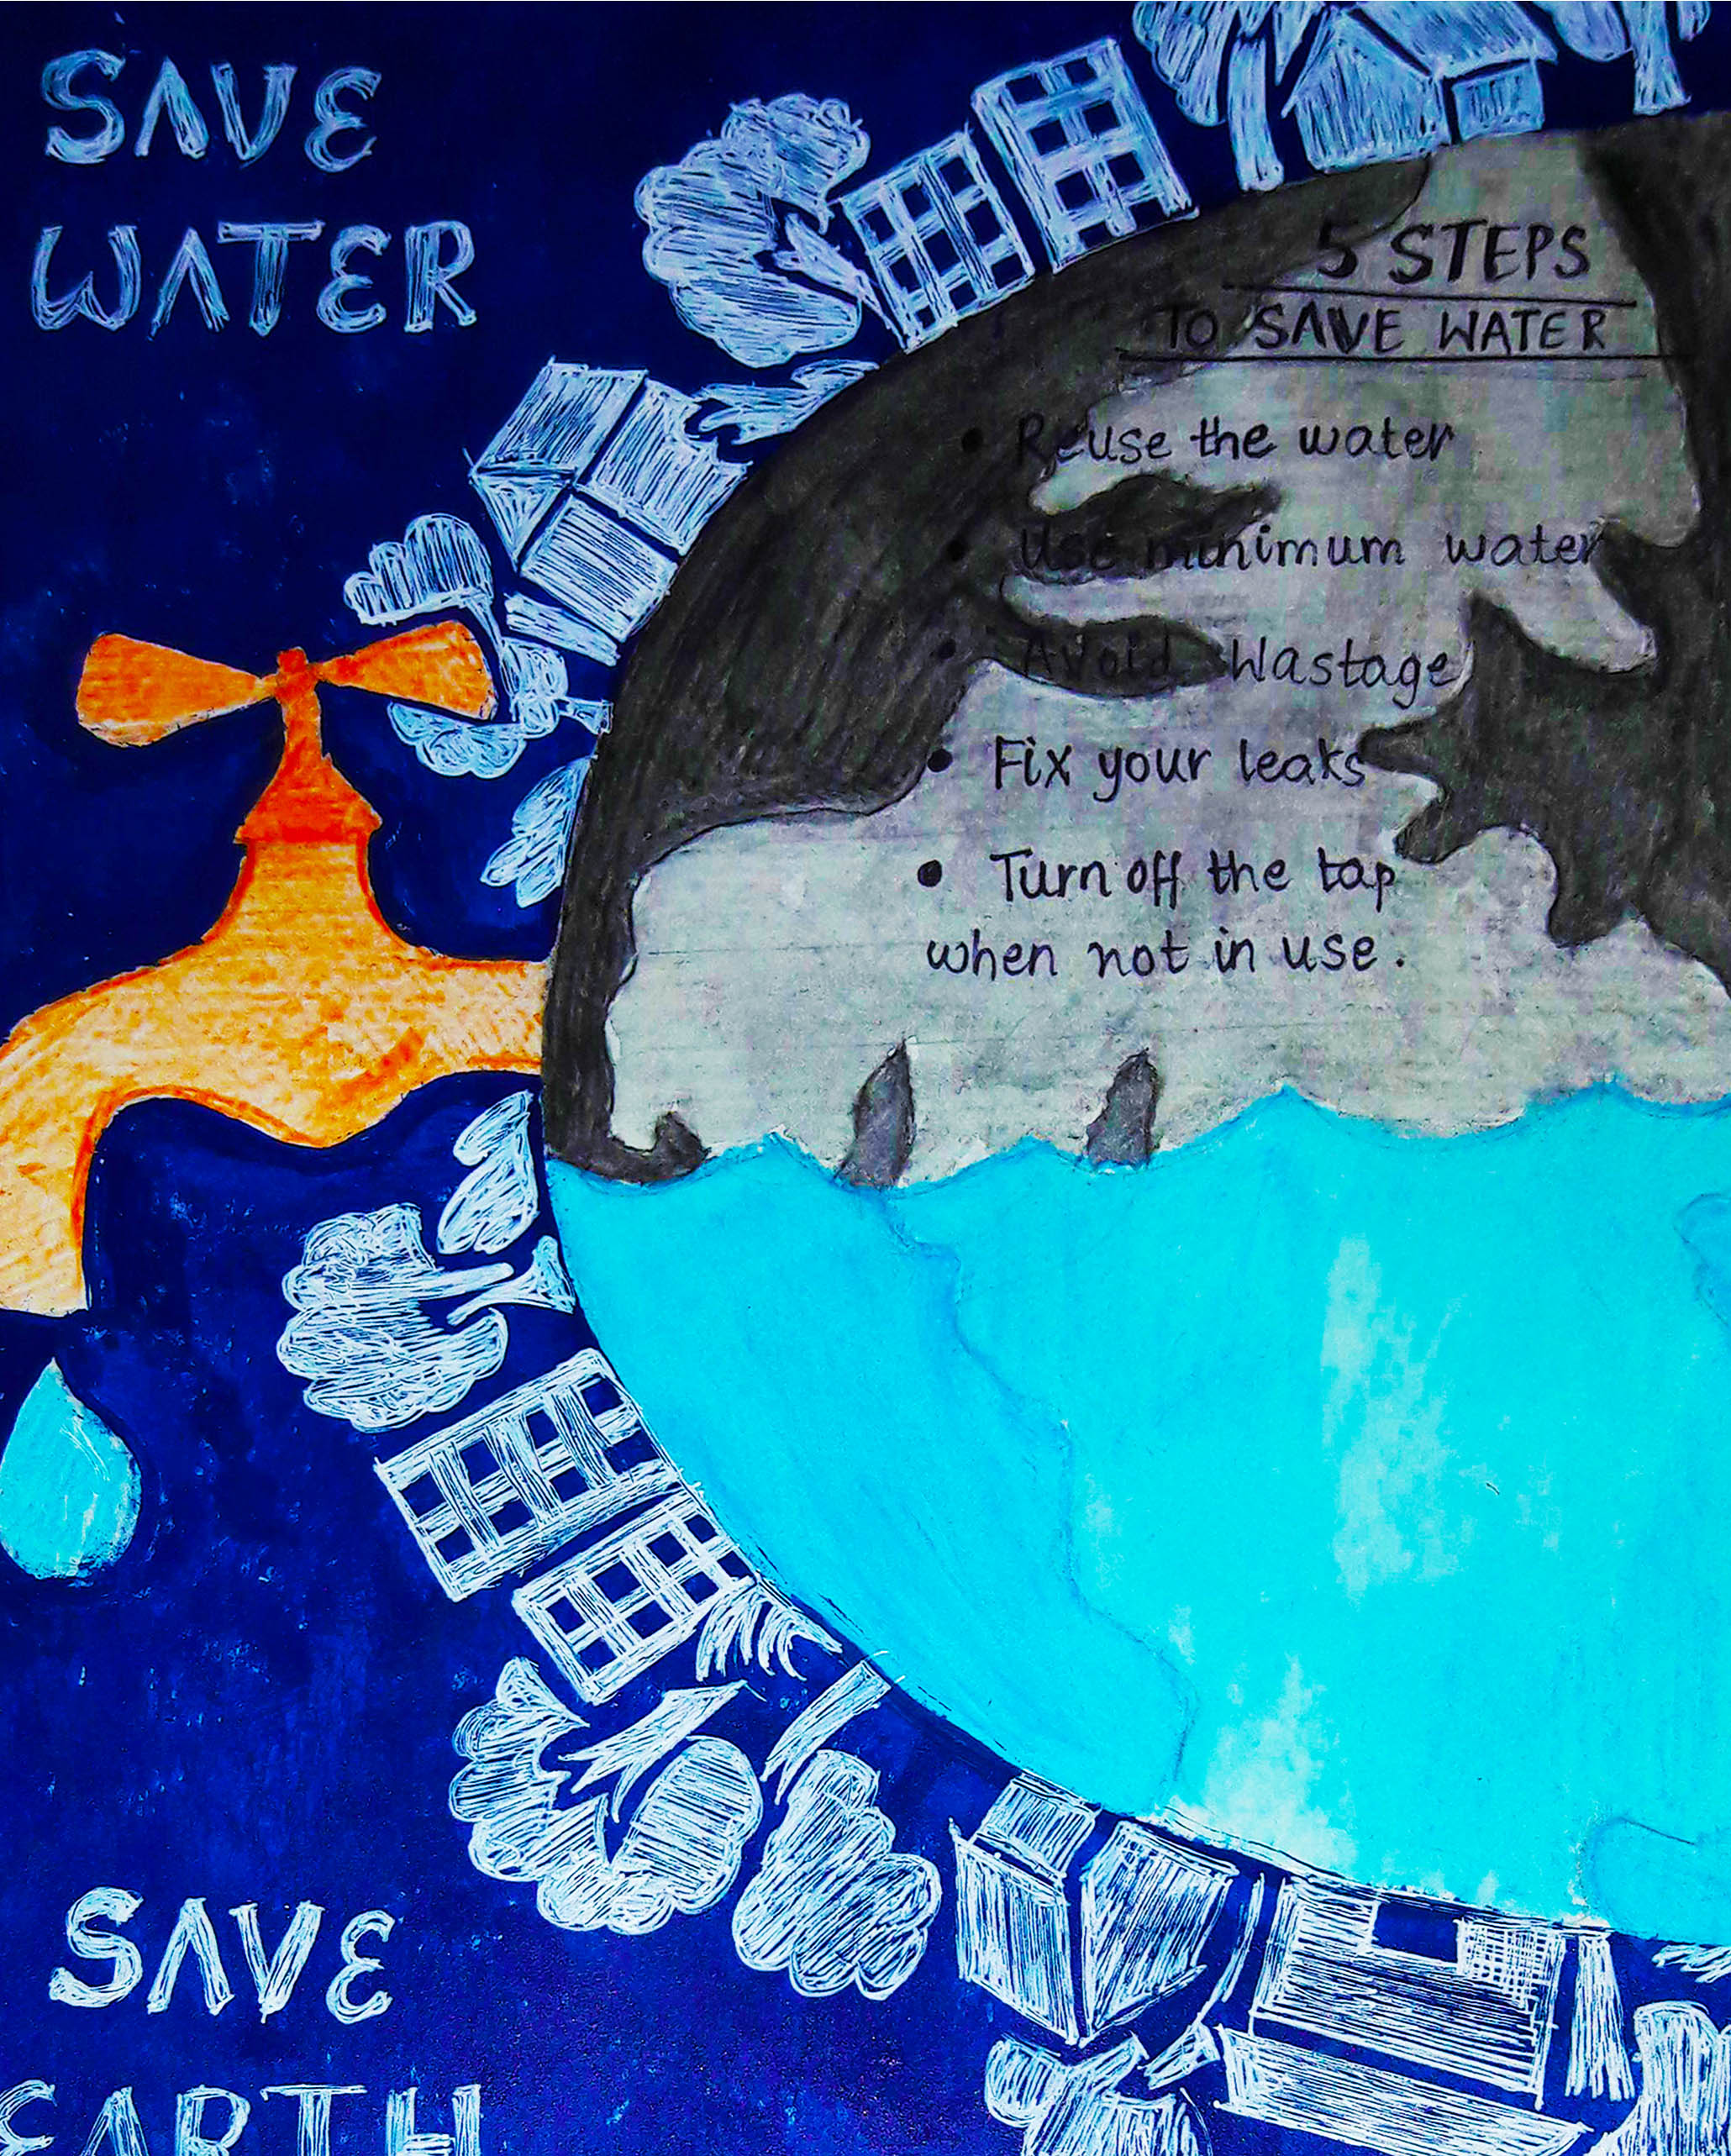 SAVE
WATER
5 STEPS
TO SAVE WATER
• Reuse the water
• Use minimum water
• Avoid Wastage
• Fix your leaks
• Turn off the tap
when not in use.
SAVE
EARTH